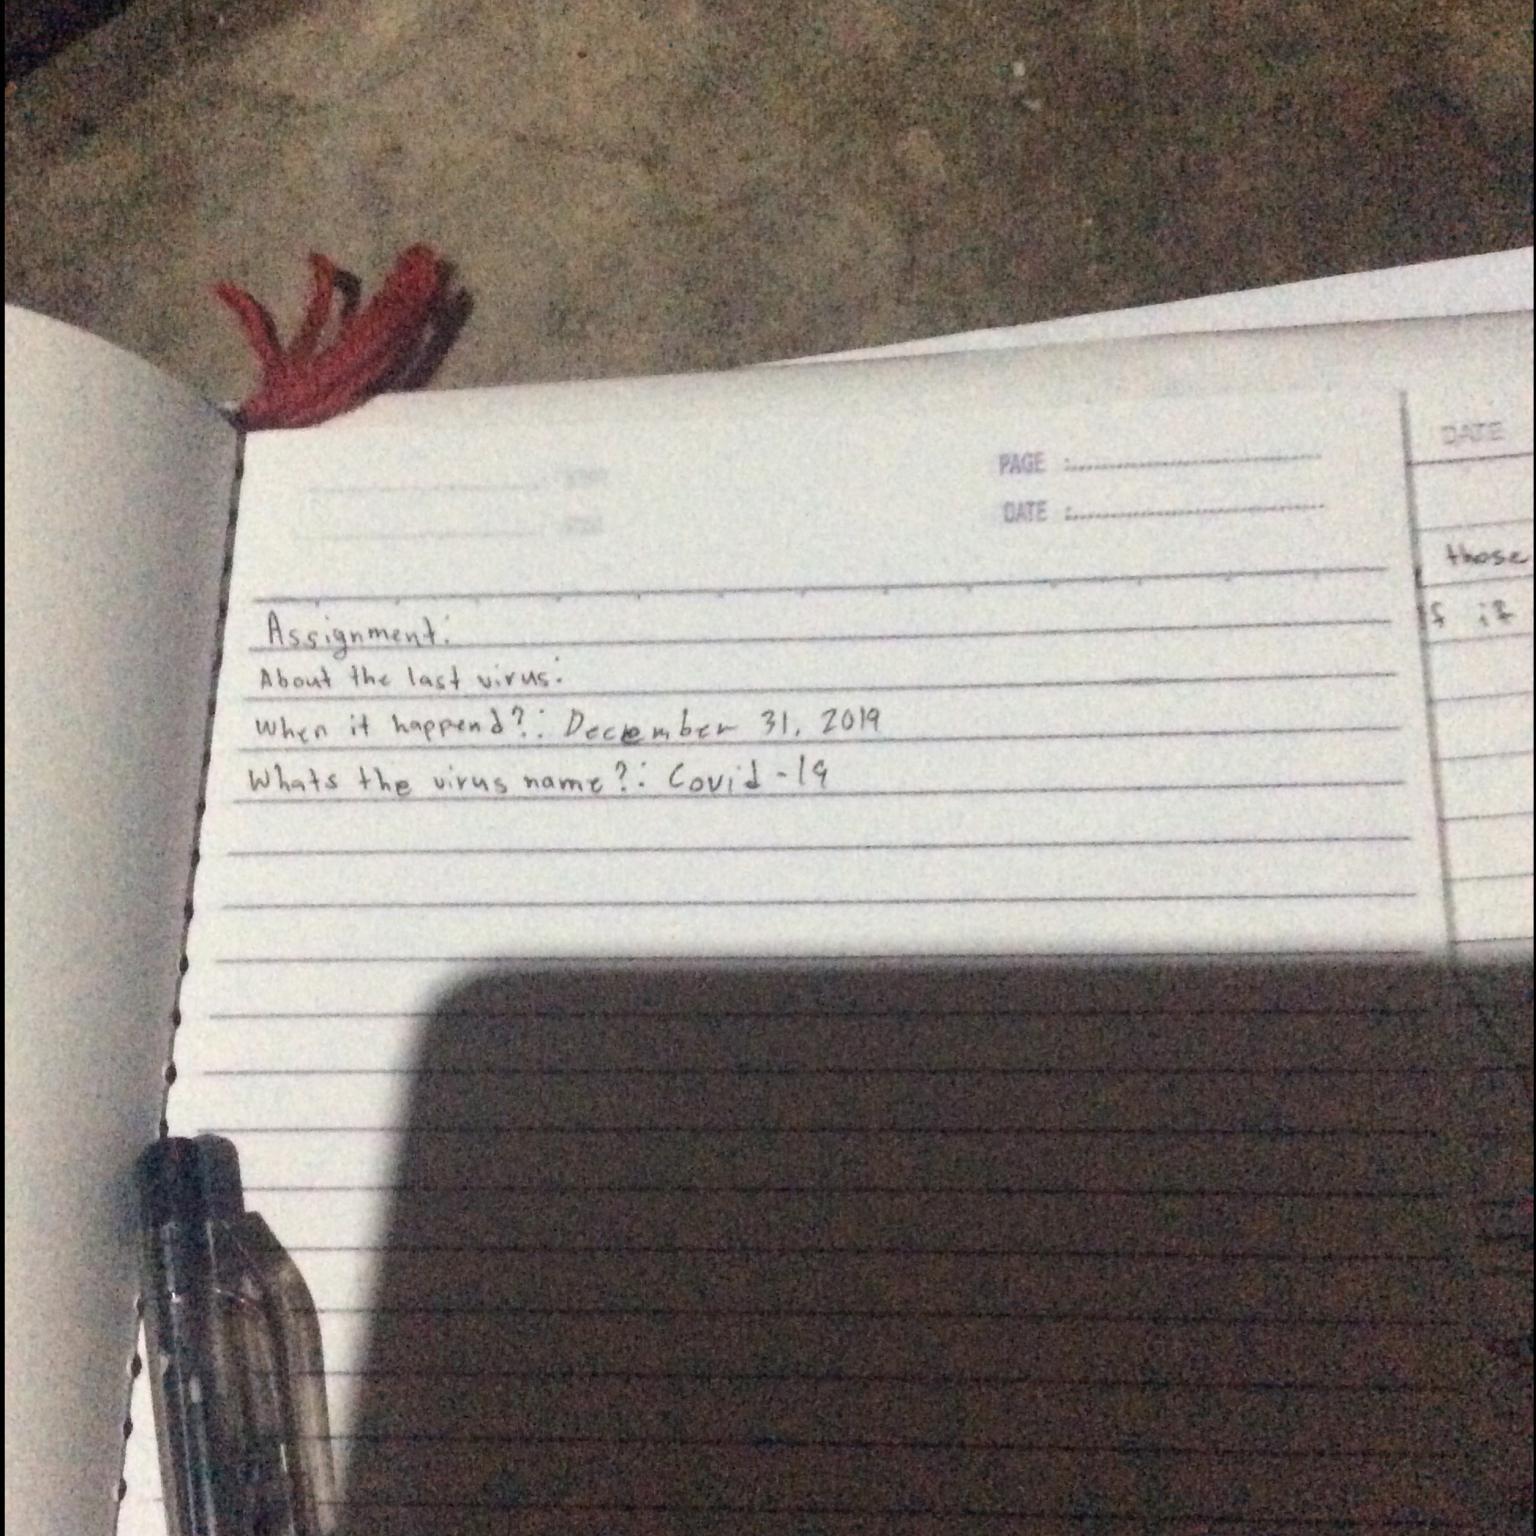 PAGE :
DATE :
Assignment:
About the last virus:
When it happend?: December 31, 2019
Whats the virus name?: Covid-19
DATE
those
if